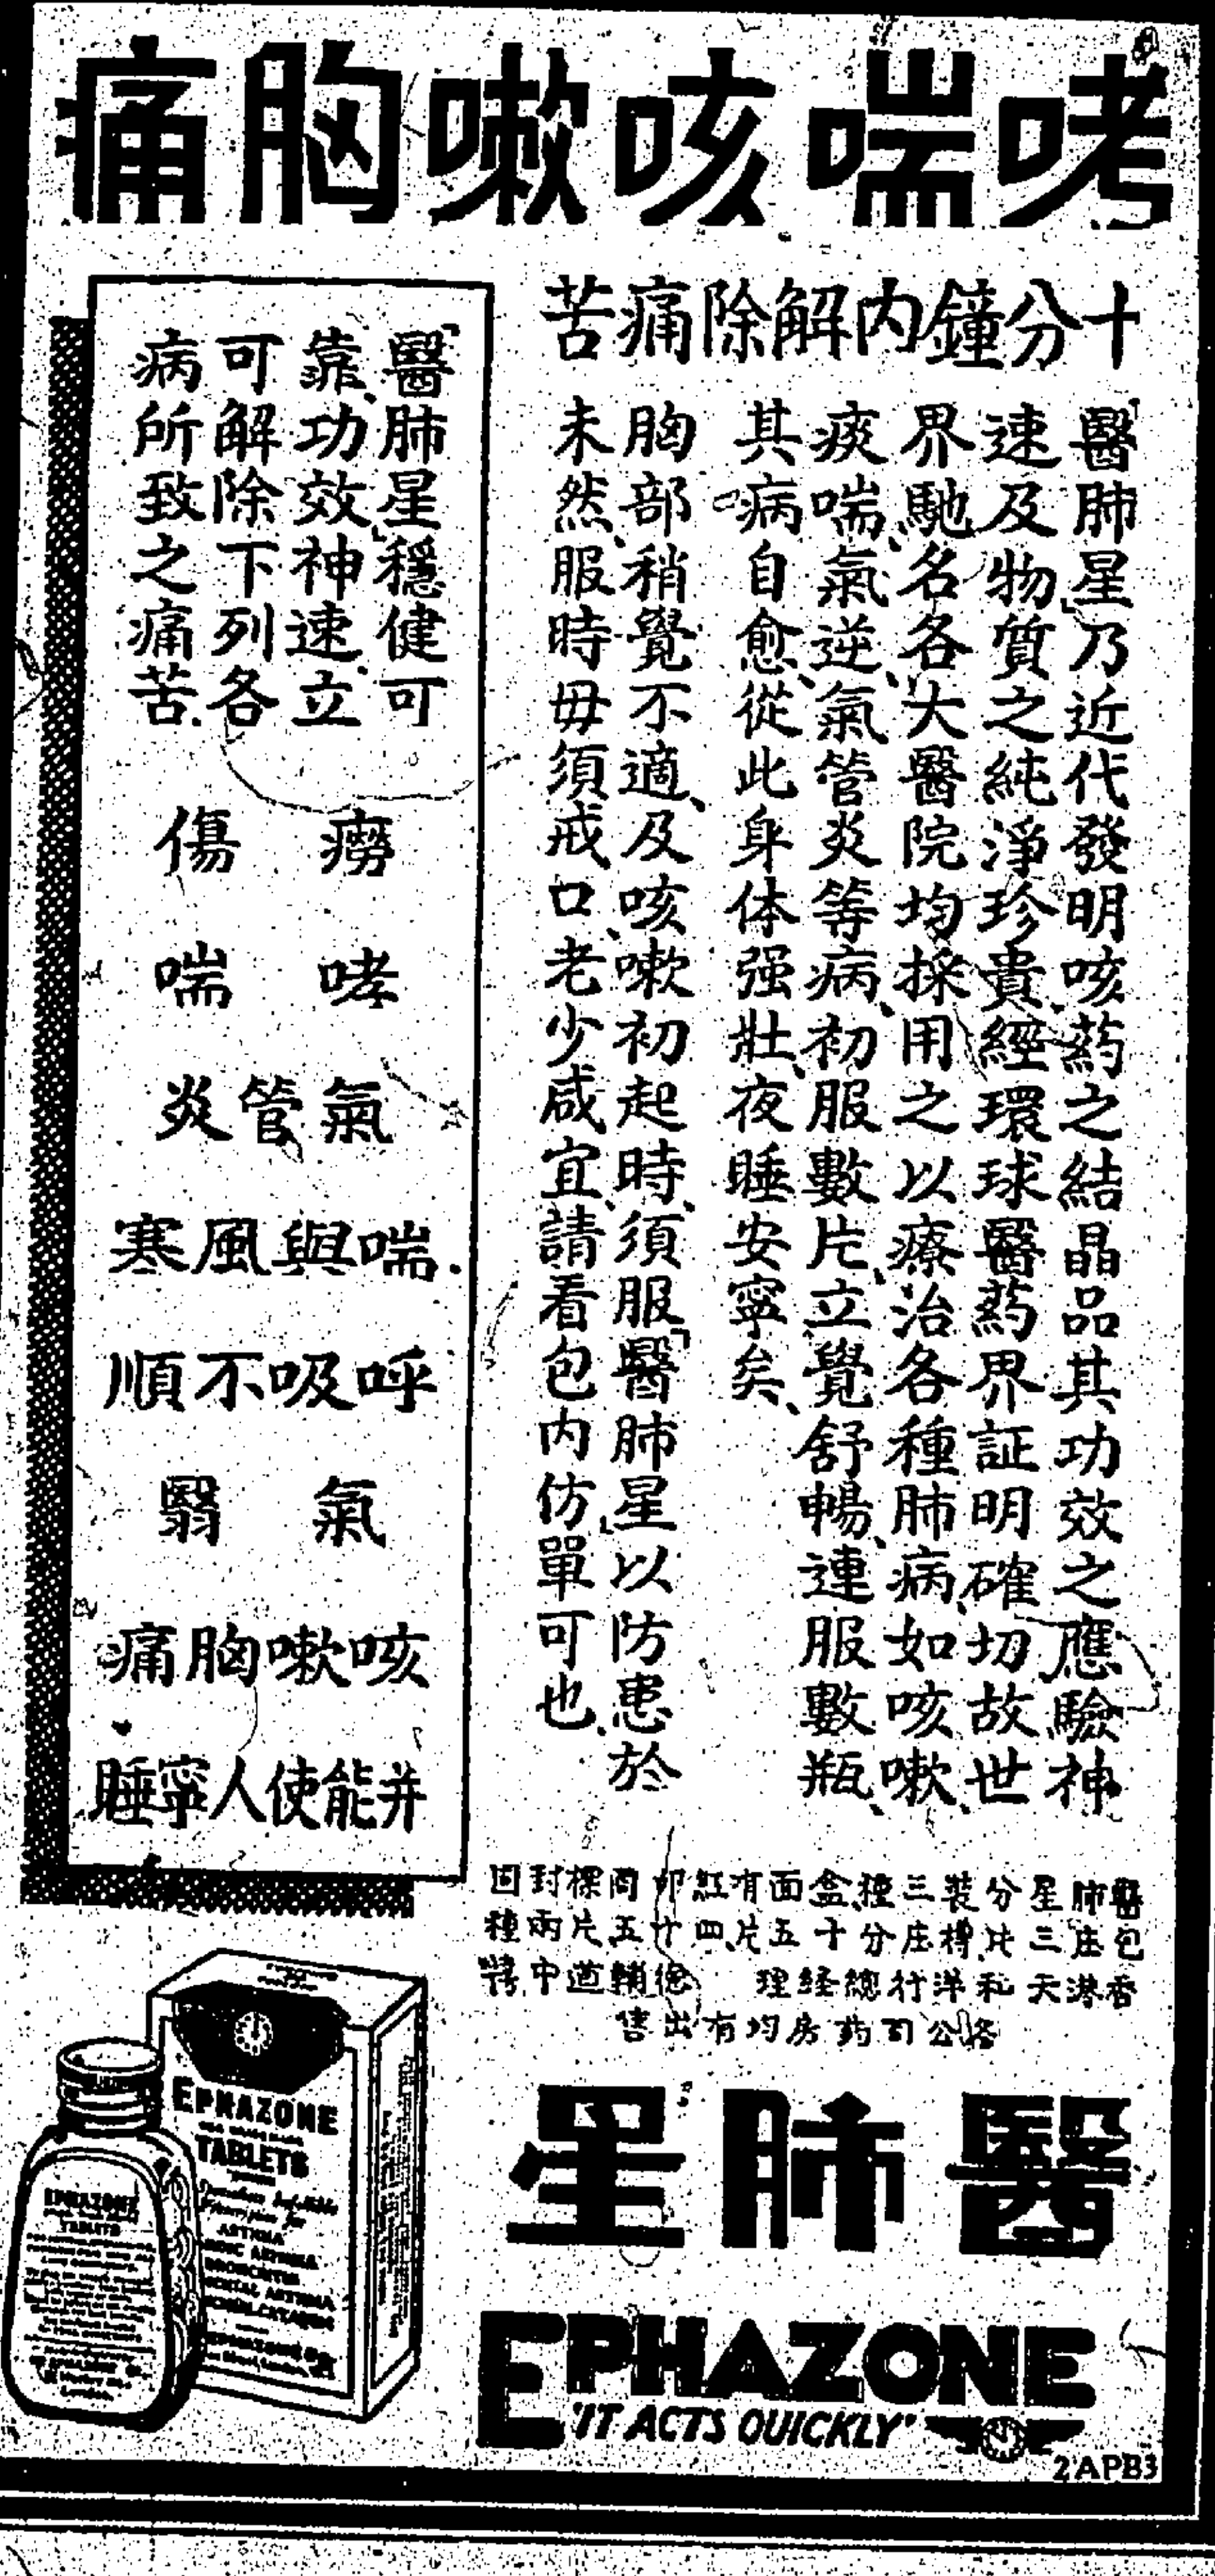 哮喘咳嗽胸痛
十分鐘內解除痛苦
「醫肺星」乃近代發明咳葯之結晶品其功效之應驗神
速及物質之純淨珍貴、經環球醫葯界証明確切故世
界馳名各大醫院均採用之以療治各種肺病、如咳嗽、
痰喘、氣逆、氣管炎等病、初服數片、立覺舒暢、連服數瓶、
其病自愈、從此身体强壯、夜睡安寧矣、
胸部稍覺不適、及咳嗽初起時、須服「醫肺星」以防患於
未然、服時毋須戒口、老少咸宜、請看包內仿單可也、
「醫肺星」穩健可
靠、功效神速、立
可解除下列各
病所致之痛苦、
癆傷
哮喘
氣管炎
喘與風寒
呼吸不順
氣翳
咳嗽胸痛
并能使人寧睡
醫肺星分裝三種、盒面有紅印商標封固
包庄三片、樽庄分十五片、四廿五片兩種
香港天和洋行總経理
各公司葯房均有出售
醫肺星
EPHAZONE
'IT ACTS QUICKLY'
2APB3
EPHAZONE
TABLETS
ASTHMA
EPHAZONE
TABLETS